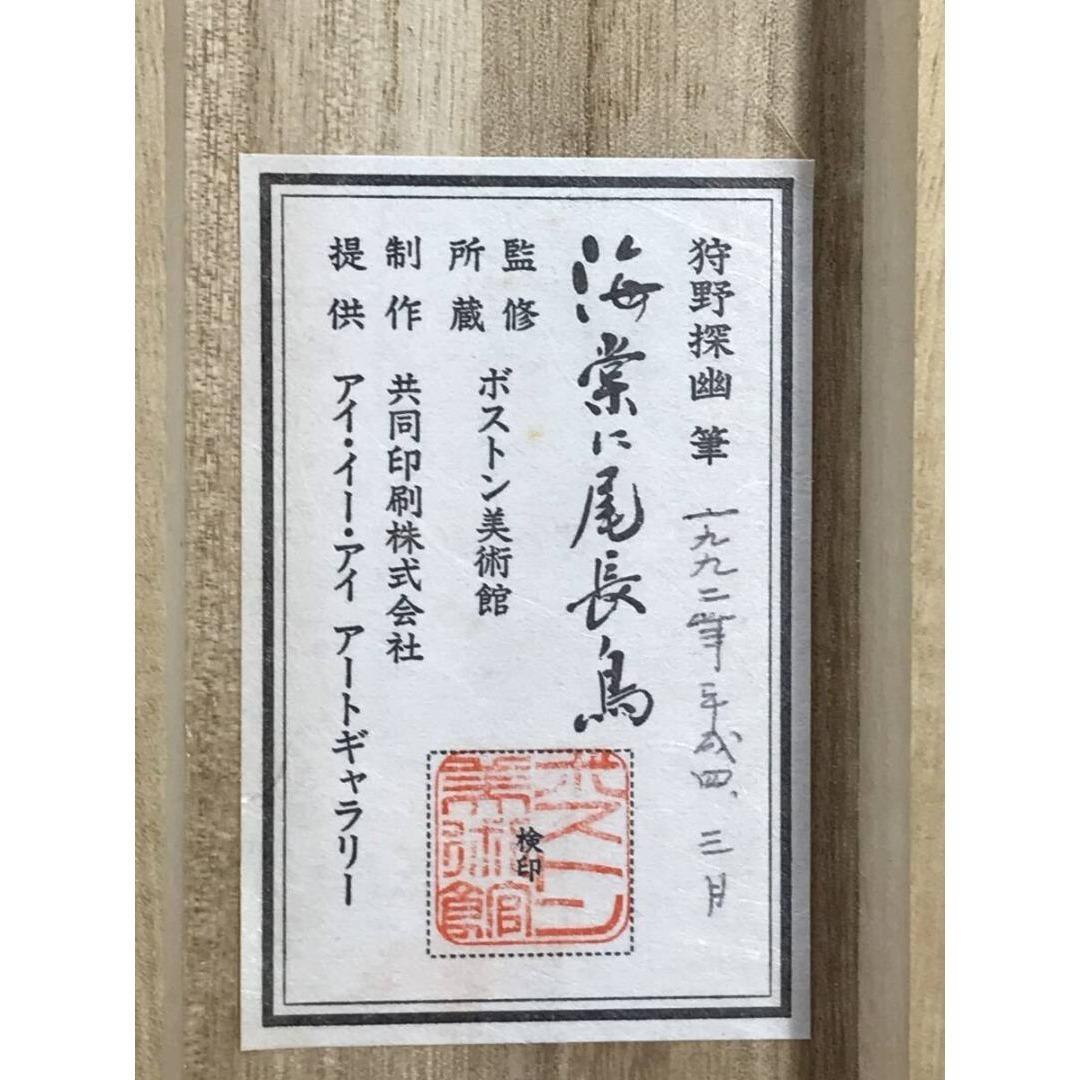 狩野探幽 筆 一九九二年 平成四、三月
海棠に尾長鳥
監修
所蔵
ボストン美術館
制作 共同印刷株式会社
提供 アイ・イー・アイ アートギャラリー
検印
ボストン
美術館